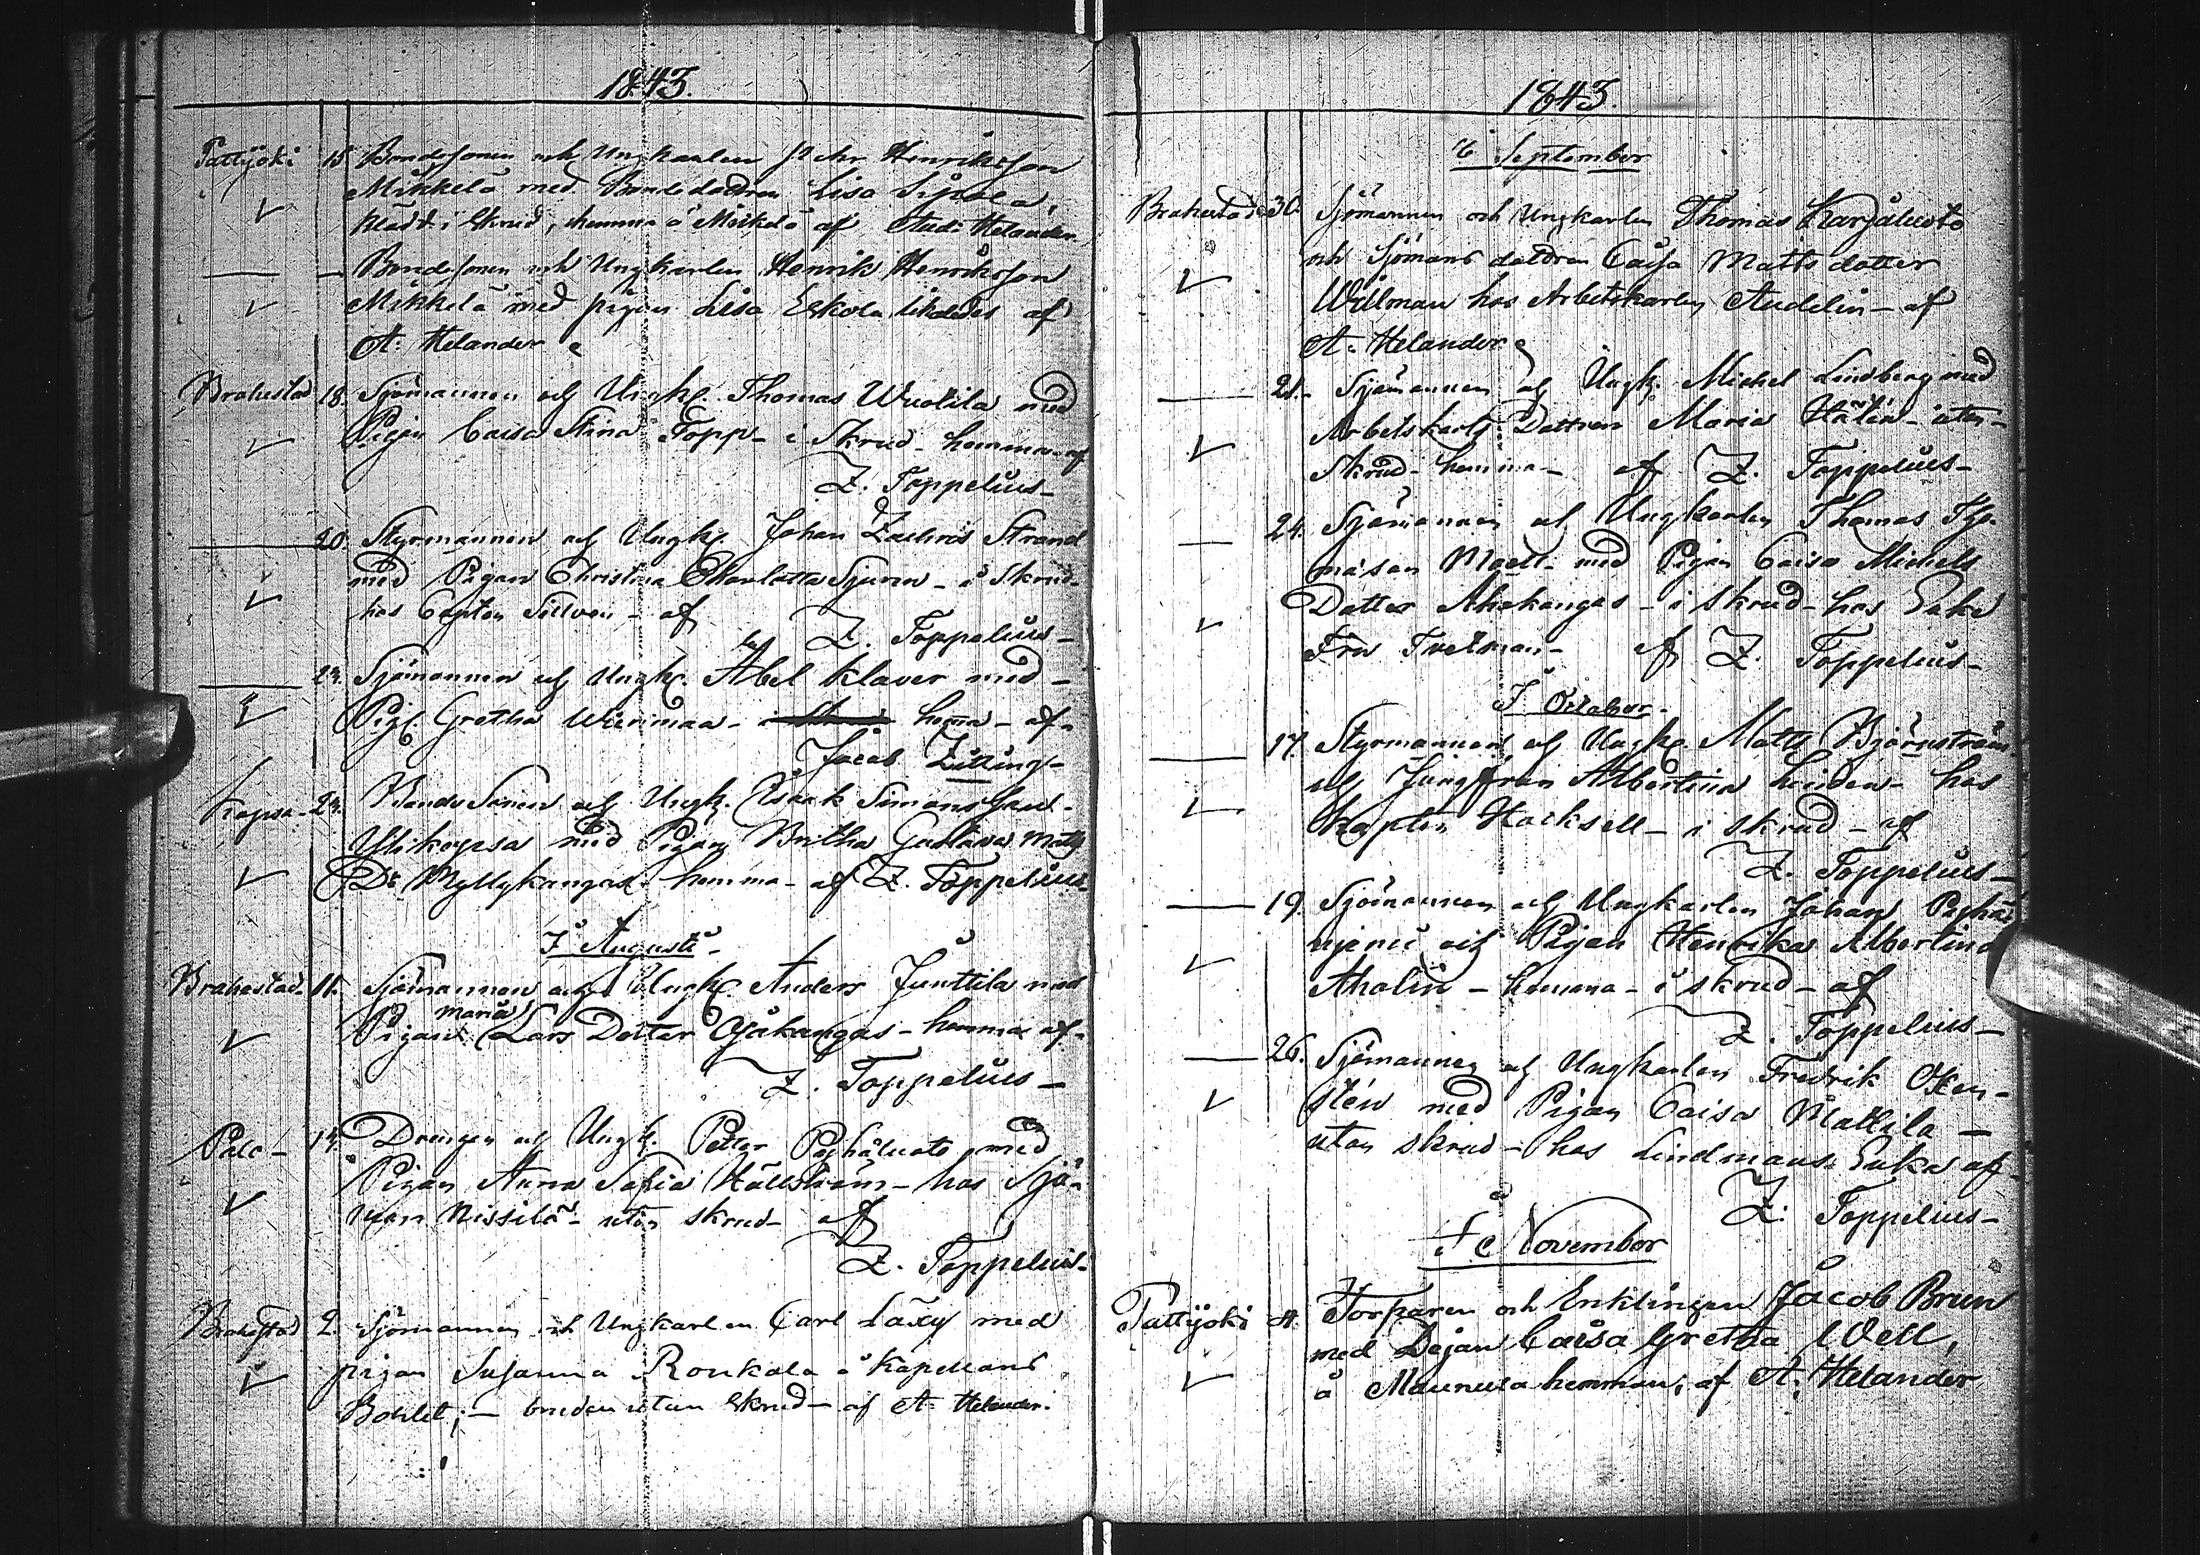 1843.
Pattijoki 15 Bondesonen och Ungkarlen Johr. Henriksson
Mikkelä med Bondedottren Lisa Sipola,
klädd i skrud, hemma å Mikkelä af And: Helander
Bondesonen och Ungkarlen Henrik Henriksson
Mikkelä med pigan Lisa Eskola likaledes af
A. Helander
Brahestad 18. Sjömannen och Ungk. Thomas Wuolila med
Pigan Caisa Stina Topp - i Skrud - hemma af
Z. Toppelius -
20. Styrmannen och Ungk. Johan Zachris Strand
med Pigan Christina Charlotta Sjuren - i Skrud -
hos Capten Sillven - af
Z. Toppelius -
24. Sjömannen och Ungk. Abel Klaver med -
Pig. Gretha Wiirimaa - hema - af -
Jacob Zitting -
Kopsa - 24. Bonde Sonen och Ungk. Isaak Simonsson -
Ylikopsa med Pigan Britha Gustava Matts
Dr Myllykangas - hemma - af Z. Toppelius
I Augusti -
Brahestad - 11. Sjömannen och Ungk. Anders Junttila med
Maria
Pigan Lars Dotter Ojakangas - hemma af -
Z. Toppelius -
Palo - 14. Drengen och Ungk. Petter Pehåluoto med
Pigan Anna Sofia Hällström - hos Sjö-
man Nissilä - utan skrud - af
Z. Toppelius -
Brahestad 2. Sjömannen och Ungkarlen Carl Laxy med
pigan Susanna Ronkala å Kapellans
Bohlet; - bruden utan Skrud - af A. Helander.
1843.
i September
Brahestad 30. Sjömannen och Ungkarlen Thomas Karjaluoto
och Sjömans dottren Caisa Matts dotter
Willman hos Arbetskarlen Audelin - af
A. Helander
21. - Sjömannen och Ungk. Michel Lindberg med
Arbetskarls Dottren Maria Hätlä - utan -
Skrud - hemma - af Z. Toppelius -
24. Sjömannen och Ungkarlen Thomas Tho-
masson Maell - med Pigan Caisa Michels
Dotter Ahokangas - i skrud - hos Enke
Fru Tvelman - af Z. Toppelius -
I October -
17. Styrmannen och Ungk. Matts Björnström
och Jungfrun Albertina Leiden - hos
Kapten Hacksell - i skrud - af
Z. Toppelius -
19. Sjömannen och Ungkarlen Johan Pyhä-
njemi och Pigan Henrika Albertina
Aholin - hemma - i skrud - af
Z. Toppelius -
26. Sjömannen och Ungkarlen Fredrik Oxen-
sten med Pigan Caisa Mattila -
utan skrud - hos Lindmans Enka af
Z. Toppelius -
I November
Pattijoki Torparen och Enklingen Jacob Brun
med Dejan Caisa Gretha Well,
å Mannila hemman; af A: Helander